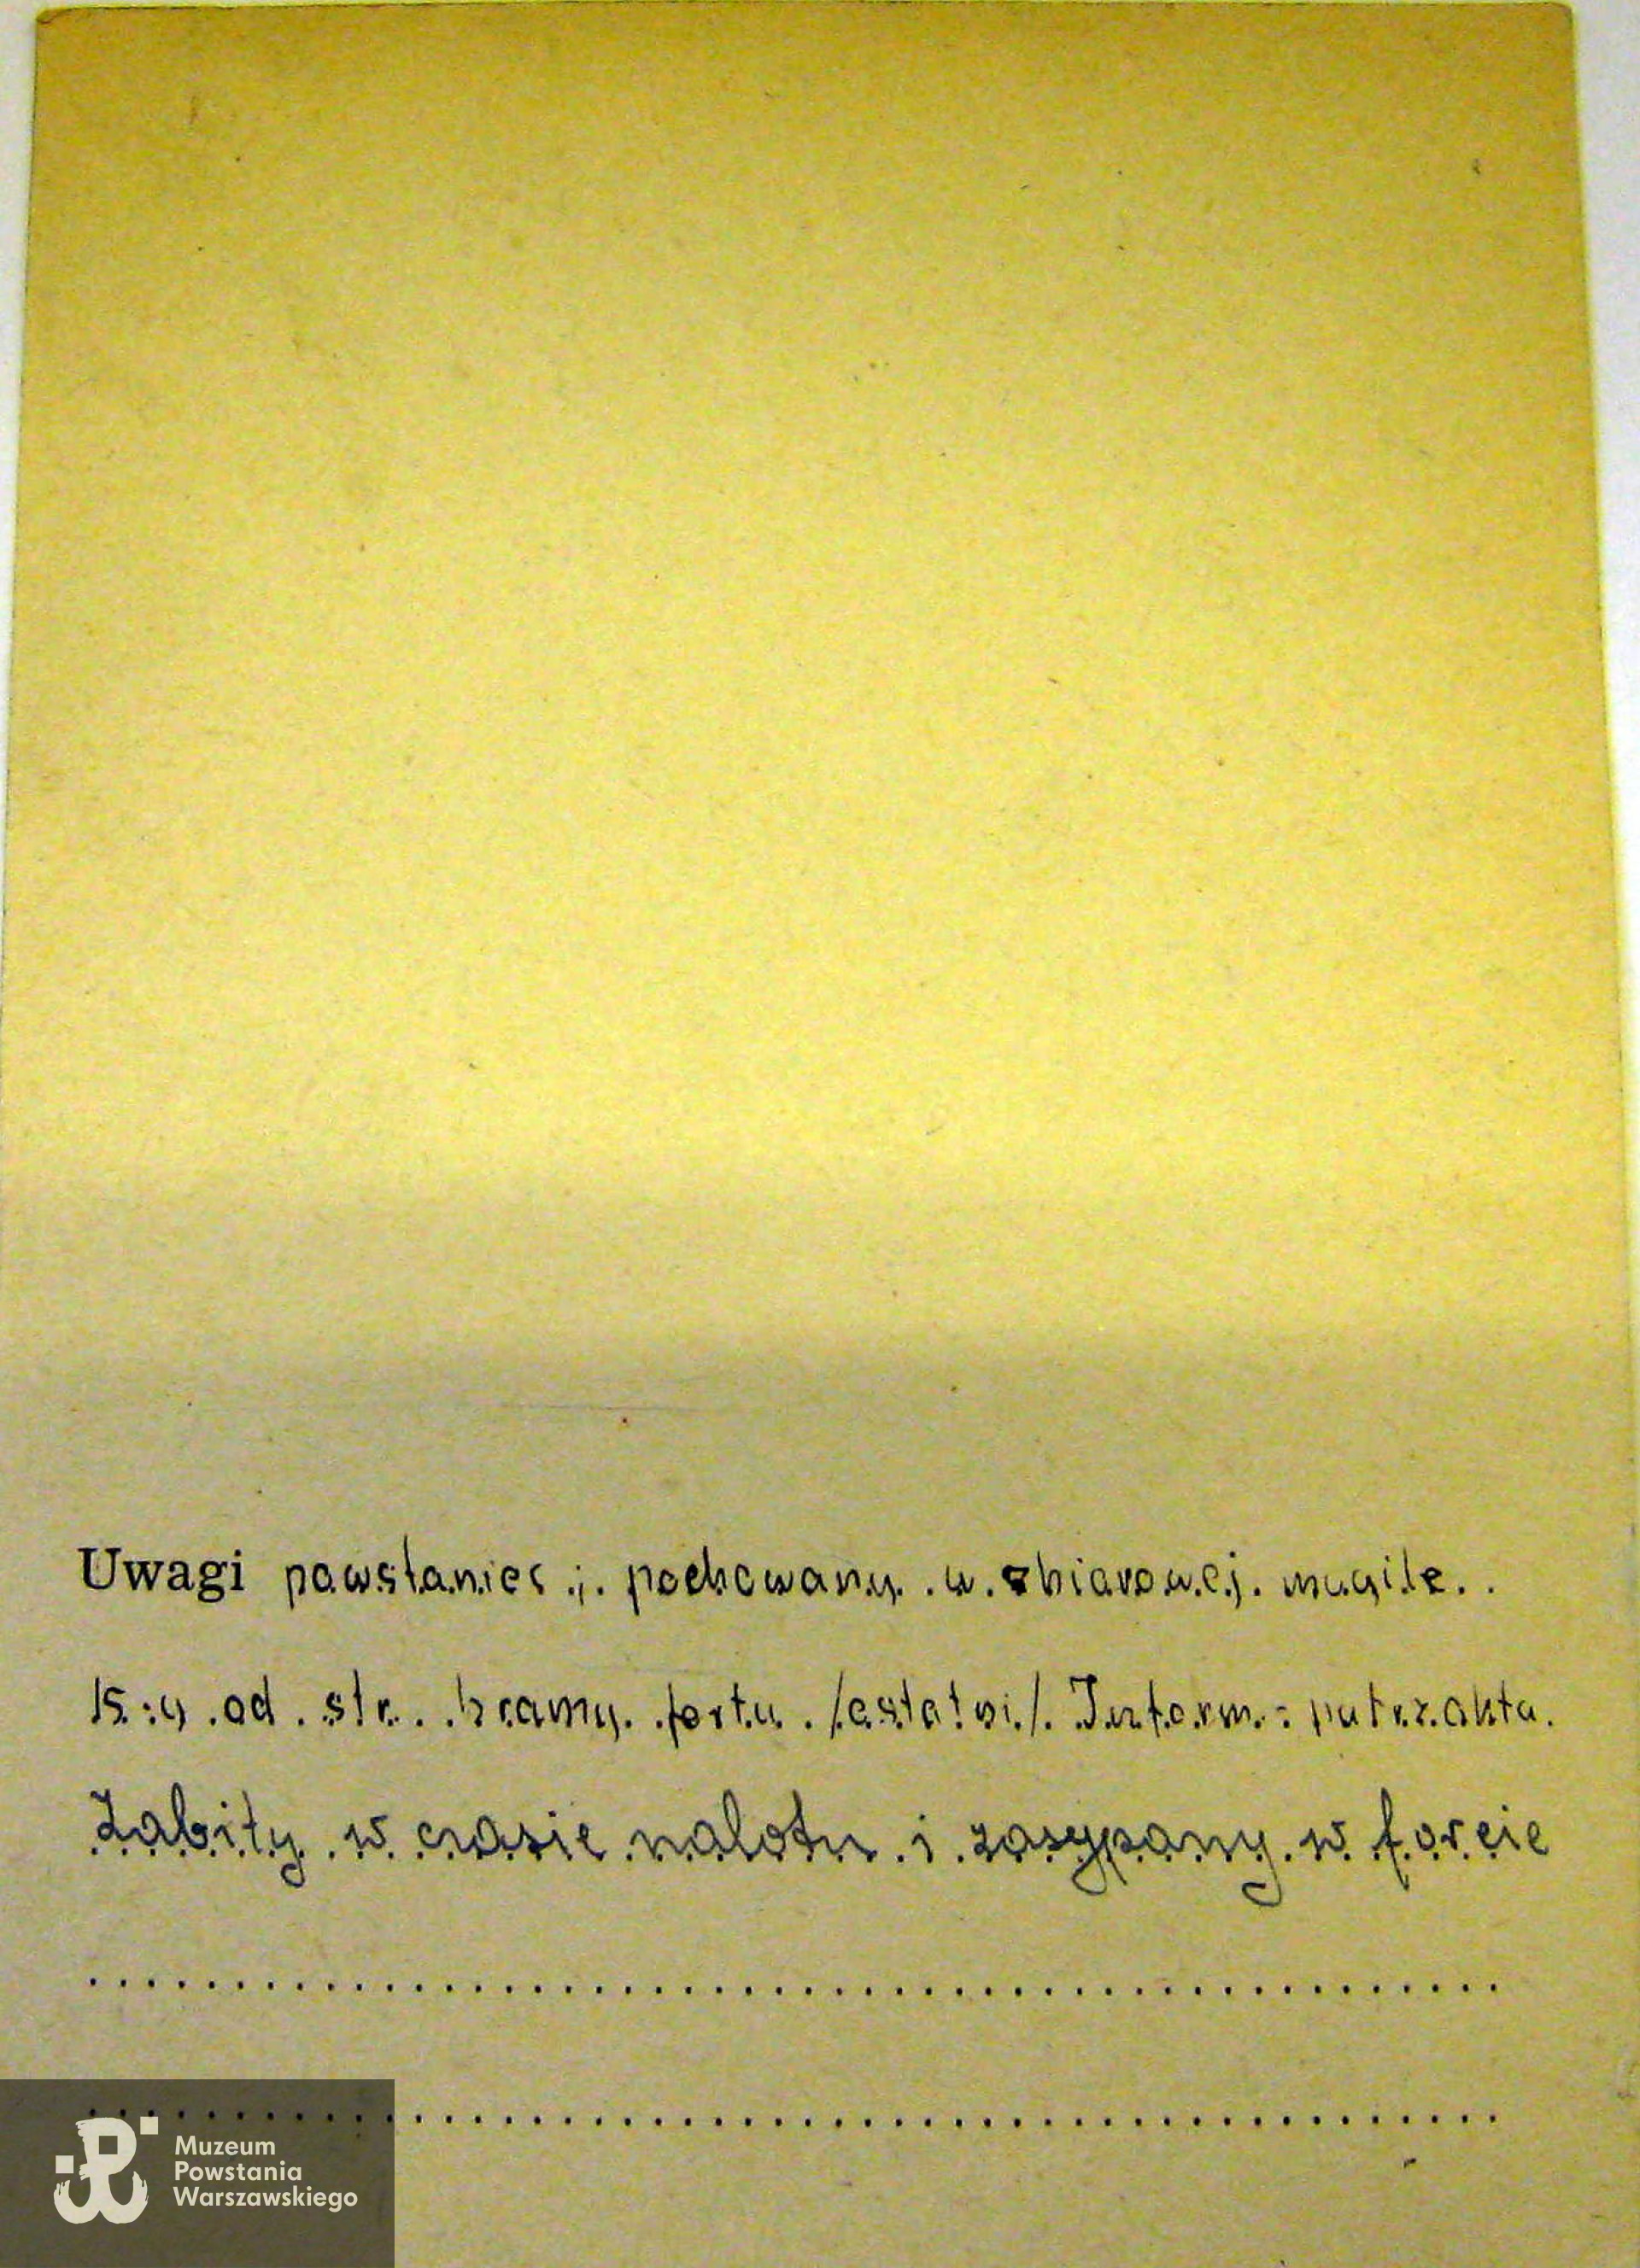 Uwagi powstaniec ; pochowany w zbiorowej mogile
od str. bramy fortu /ostatni/. Inform.: patrz akta.
Zabity w czasie nalotu i zasypany w forcie
Muzeum
Powstania
Warszawskiego